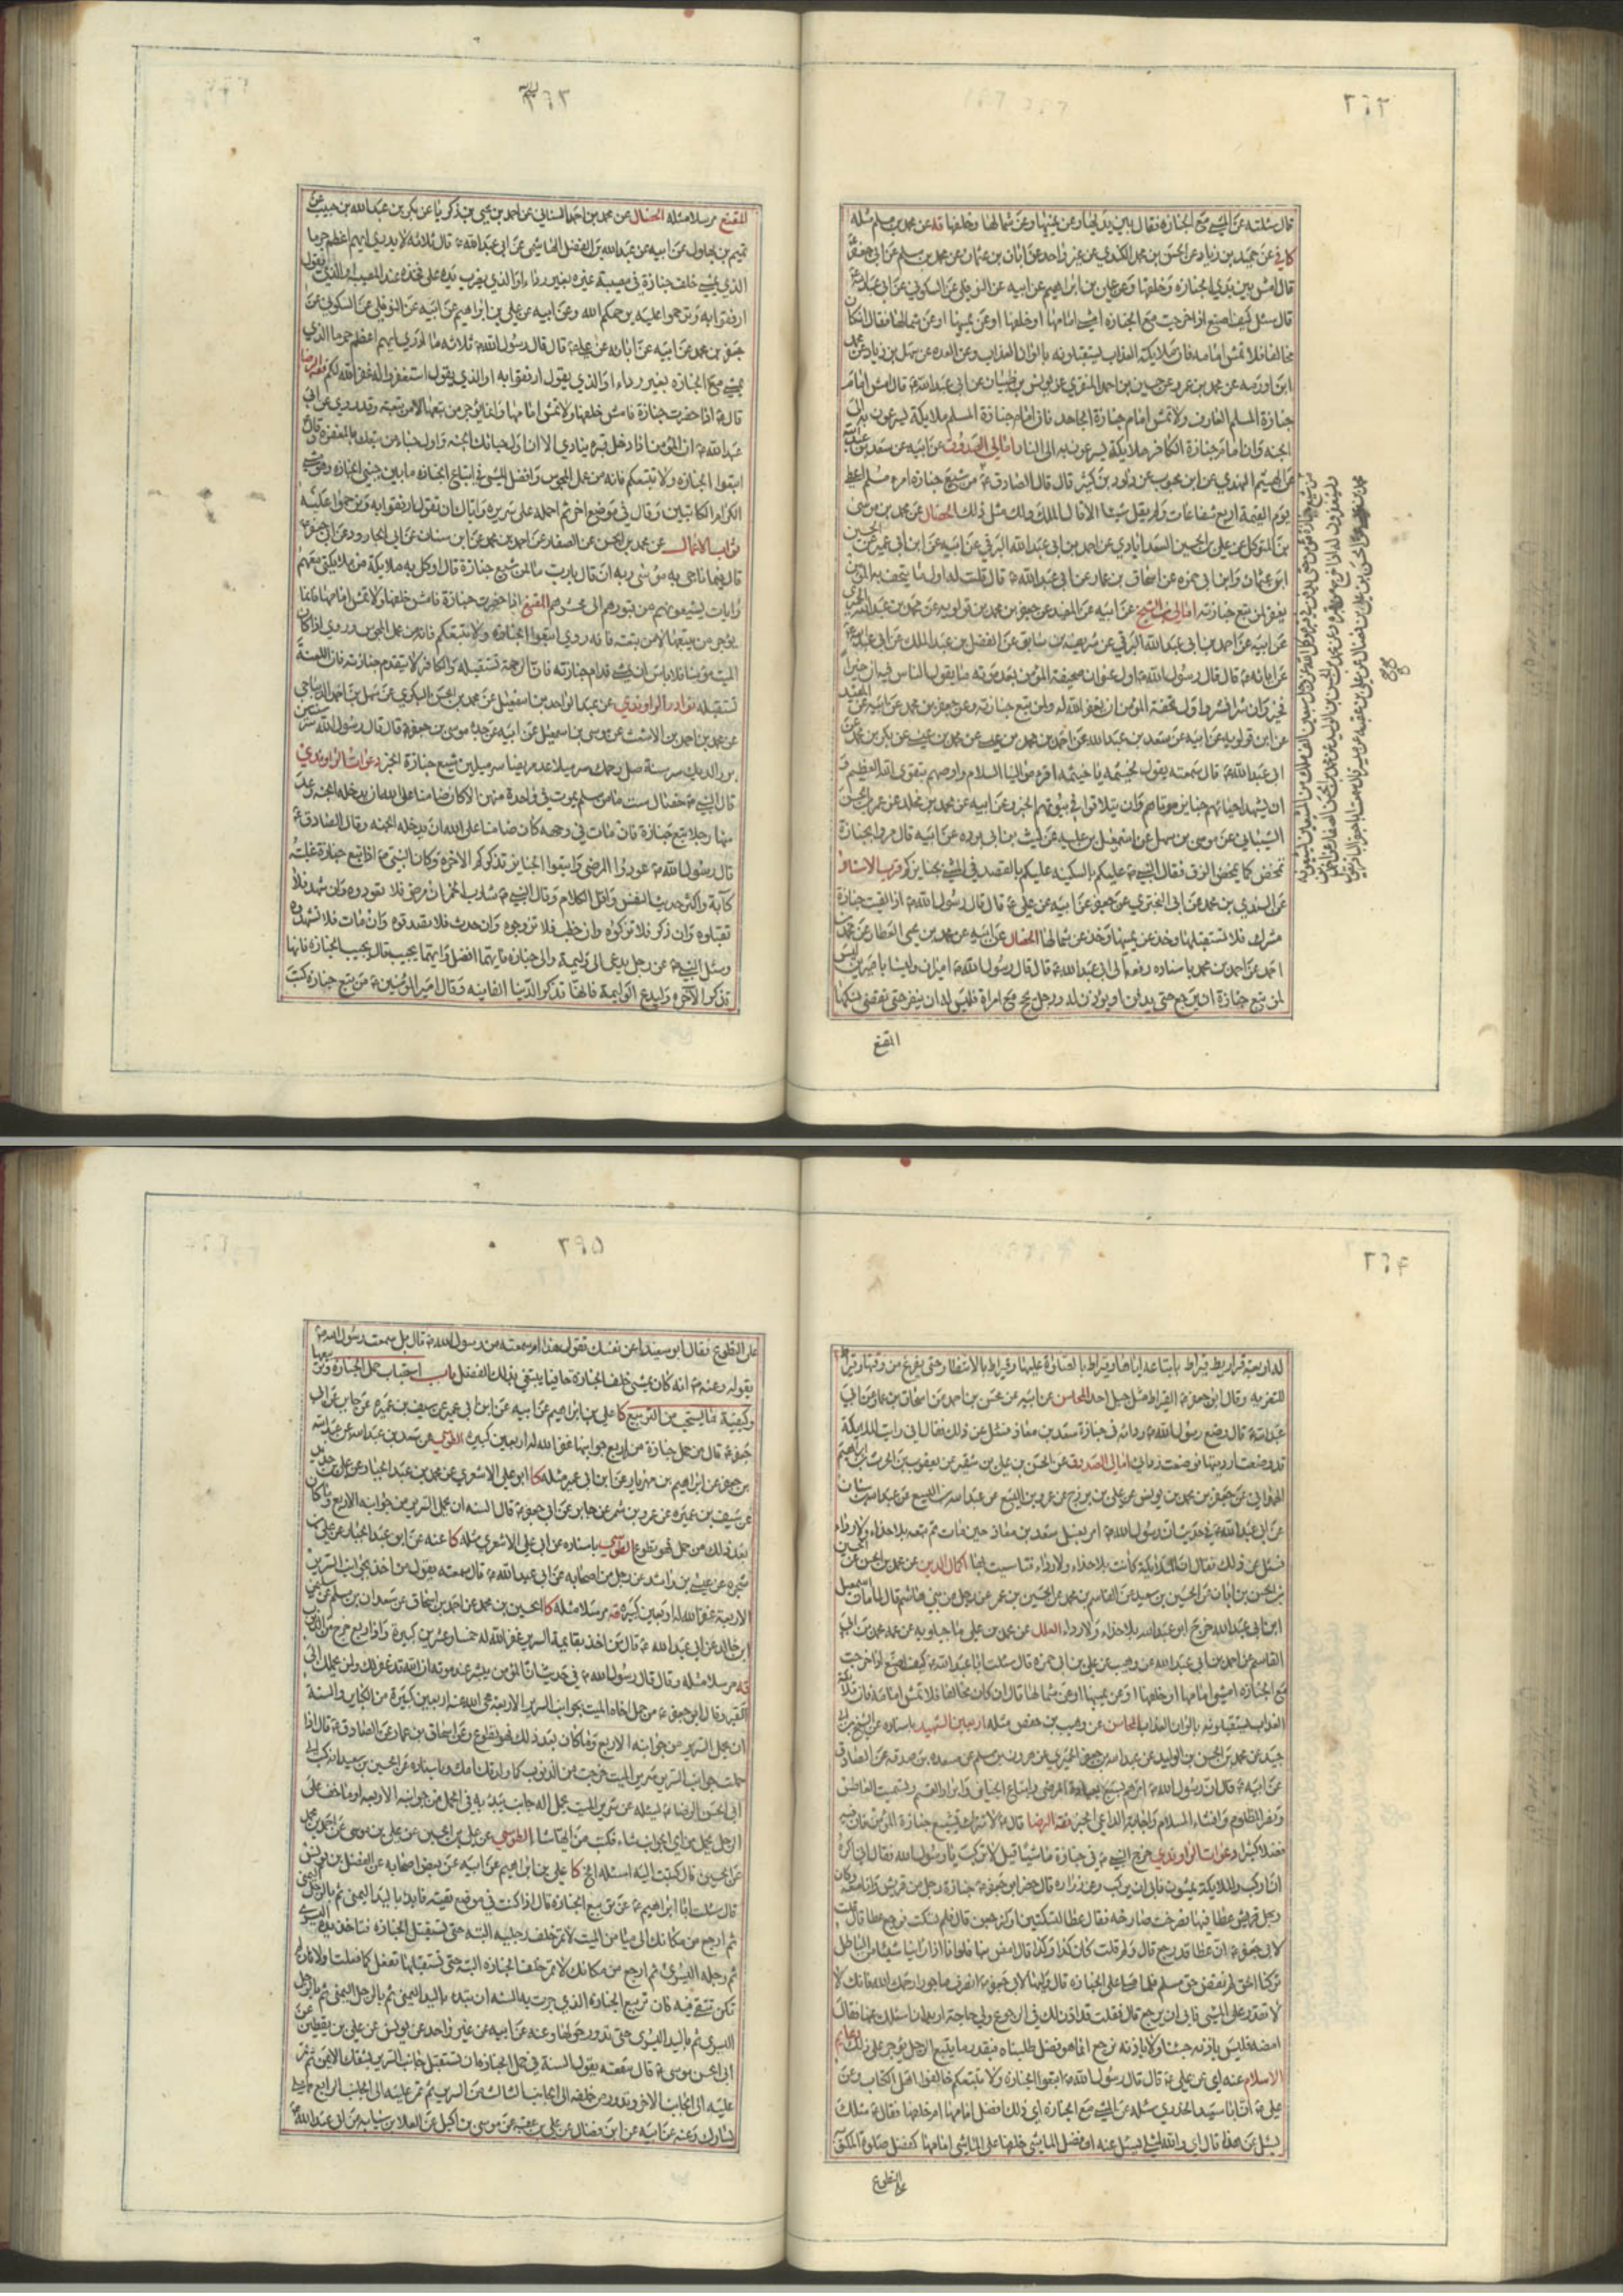 ٢٦٢
قال سئلته عن المشي مع الجنازه فقال بين يديها وعن يمينها وعن شمالها وخلفها قه عن محمد بن مسلم مثله
كا في عن حميد بن زياد عن الحسن بن محمد الكندي عن غير واحد عن ابان بن عثمان عن محمد بن مسلم عن ابي جعفر
قال امش بين يدي الجنازه وخلفها وعن علي بن ابراهيم عن ابيه عن النوفلي عن السكوني عن ابي عبد الله
قال سئل كيف اصنع اذا خرجت مع الجنازه امشي امامها او خلفها او عن يمينها او عن شمالها فقال ان كان
مخالفا فلا تمش امامه فان ملائكة العذاب يستقبلونه بالوان العذاب وعن العده عن سهل بن زياد عن محمد
ابن اورمه عن محمد بن عمرو عن حسين بن احمد المنقري عن يونس بن ظبيان عن ابي عبد الله ع قال امش امام
جنازة المسلم العارف ولا تمش امام جنازة الجاحد فان امام جنازة المسلم ملايكة يسرعون به الى
الجنه وان امام جنازة الكافر ملايكة يسرعون به الى النار امالي الصدوق عن ابيه عن سعد بن عبد الله
عن الهيثم النهدي عن ابن محبوب عن داود بن كثير قال قال الصادق ع من شيع جنازة امرء مسلم اعطي
يوم القيمة اربع شفاعات ولم يقل شيئا الا قال الملك ولك مثل ذلك الخصال عن محمد بن موسى
بن المتوكل عن علي بن الحسين السعد ابادي عن احمد بن ابي عبد الله البرقي عن ابيه عن ابن ابي عمير عن الحسين
ابن عثمان وابن ابي حمزه عن اسحاق بن عمار عن ابي عبد الله ع قال قلت له اول ما يتحف به المؤمن
يغفر لمن يتبع جنازته امالي ابن الشيخ عن ابيه عن المفيد عن جعفر بن محمد بن قولويه عن محمد بن عبد الله الحميري
عن ابيه عن احمد بن ابي عبد الله البرقي عن شريف بن سابق عن الفضل بن عبد الملك عن ابي عبد الله
عن ابائه ع قال قال رسول الله ص اول عنوان صحيفة المؤمن بعد موته ما يقول الناس فيه ان خيرا
فخير وان شرا فشر واول تحفة المؤمن ان يغفر الله له ولمن يتبع جنازته وعن جعفر بن محمد عن ابيه عن المفيد
عن ابن قولويه عن ابيه عن سعد بن عبد الله عن احمد بن محمد بن عيسى عن محمد بن عيسى عن بكر بن محمد عن
ابي عبد الله ع قال سمعته يقول لخيثمه يا خيثمه اقرء موالينا السلام واوصهم بتقوى الله العظيم
ان يشهد احياؤهم جنايز موتاهم وان يتلاقوا في بيوتهم الخبر وعن ابيه عن محمد بن مخلد عن عمر بن الحسن
الشيباني عن موسى بن سهل عن اسمعيل بن علية عن ليث بن ابي برده عن ابيه قال مروا بجنازة
تمخض كما يمخض الزق فقال النبي ص عليكم بالسكينه عليكم بالقصد في المشي بجنايزكم قرب الاسناد
عن السندي بن محمد عن ابي البختري عن جعفر عن ابيه عن علي ع قال قال رسول الله ص اذا لقيت جنازة
مشرك فلا تستقبلها وخذ عن يمينها وخذ عن شمالها الخصال عن ابيه عن محمد بن يحيى العطار عن محمد بن
احمد عن احمد بن محمد باسناده رفعه الى ابي عبد الله ع قال قال رسول الله ص اميران وليسا باميرين ليس
لمن يتبع جنازة ان يرجع حتى يدفن او يؤذن له ورجل يحج مع امراة فليس له ان ينفر حتى تقضي نسكها
المقنع
من شيع جنازة مؤمن حتى يدفن في قبره وكل الله عز وجل سبعين الف ملك من المشيعين يشيعونه
ويستغفرون له اذا خرج من قبره
٢٦٣
المقنع مرسلا مثله الخصال عن محمد بن احمد السناني عن احمد بن يحيى بن زكريا عن بكر بن عبد الله بن حبيب عن
تميم بن بهلول عن ابيه عن عبد الله بن الفضل الهاشمي عن ابي عبد الله ع قال ثلاثه لا يدري ايهم اعظم جرما
الذي يمشي خلف جنازة في مصيبة غيره بغير رداء او الذي يضرب يده على فخذه عند المصيبه او الذي يقول
ارفقوا به وترحموا عليه يرحمكم الله وعن ابيه عن علي بن ابراهيم عن ابيه عن النوفلي عن السكوني عن
جعفر بن محمد عن ابيه عن ابائه عن علي ع قال قال رسول الله ص ثلاثه ما ادري ايهم اعظم جرما الذي
يمشي مع الجنازه بغير رداء او الذي يقول ارفقوا به او الذي يقول استغفروا له غفر الله لكم فقه الرضا
قال ع اذا حضرت جنازة فامش خلفها ولا تمش امامها وانما يؤجر من تبعها لا من تبعته وقد روي عن ابي
عبد الله ع ان المؤمن اذا ادخل قبره ينادي الا ان اول حبائك الجنه واول حباء من تبعك المغفره وقال
اتبعوا الجنازه ولا تتبعكم فانه من عمل المجوس وافضل المشي في اتباع الجنازه ما بين جنبي الجنازه وهو مشي
الكرام الكاتبين وقال في موضع اخر ثم احمله على سريره واياك ان تقول ارفقوا به وترحموا عليه
ثواب الاعمال عن محمد بن الحسن عن الصفار عن احمد بن محمد عن ابن سنان عن ابي الجارود عن ابي جعفر ع
قال فيما ناجى به موسى ربه ان قال يا رب ما لمن شيع جنازة قال اوكل به ملايكة من ملايكتي معهم
رايات يشيعونهم من قبورهم الى محشرهم المقنع اذا حضرت جنازة فامش خلفها ولا تمش امامها فانما
يؤجر من يتبعها لا من تبعته فانه روي اتبعوا الجنازه ولا تتبعكم فانه من عمل المجوس وروي اذا كان
الميت مؤمنا فلا باس ان يمشي قدام جنازته فان الرحمة تستقبله والكافر لا يتقدم جنازته فان اللعنة
تستقبله نوادر الراوندي عن عبد الواحد بن اسمعيل عن محمد بن الحسن البكري عن سهل بن احمد الديباجي
عن محمد بن احمد بن الاشعث عن موسى بن اسمعيل عن ابيه عن جده موسى بن جعفر ع قال قال رسول الله ص سر سنتين
بر والديك سر سنة صل رحمك سر ميلا عد مريضا سر ميلين شيع جنازة الخبر دعوات الراوندي
قال النبي ص خصال ست ما من مسلم يموت في واحدة منهن الا كان ضامنا على الله ان يدخله الجنه وعد
منها رجلا يتبع جنازة فان مات في وجهه كان ضامنا على الله ان يدخله الجنه وقال الصادق ع
قال رسول الله ص عودوا المرضى واتبعوا الجنايز تذكركم الاخره وكان النبي ص اذا تبع جنازة غلبته
كآبة واكثر حديث النفس واقل الكلام وقال النبي ص شارب الخمر ان مرض فلا تعودوه وان شهد فلا
تقبلوه وان ذكر فلا تزكوه وان خطب فلا تزوجوه وان حدث فلا تصدقوه وان مات فلا تشهدوه
وسئل النبي ص عن رجل يدعى الى وليمة والى جنازة فايهما افضل وايهما يجيب قال يجيب الجنازه فانها
تذكر الآخره وليدع الوليمة فانها تذكر الدنيا الفانيه وقال امير المؤمنين ع من تبع جنازة كتب
٢٦٤
له اربعة قراريط قيراط باتباعه اياها وقيراط بالصلوة عليها وقيراط بالانتظار حتى يفرغ من دفنها وقيراط
للتعزيه وقال ابو جعفر ع القيراط مثل جبل احد المحاسن عن ابيه عن محسن بن احمد عن اسحاق بن عمار عن ابي
عبد الله ع قال وضع رسول الله ص رداءه في جنازة سعد بن معاذ فسئل عن ذلك فقال اني رايت الملايكة
قد وضعت ارديتها فوضعت ردائي امالي الصدوق عن الحسن بن علي بن شقير عن يعقوب بن الحرث بن ابراهيم
الهمداني عن جعفر بن محمد بن يونس عن علي بن بزرج عن عمرو بن اليسع عن عبد الله بن اليسع عن عبد الله بن سنان
عن ابي عبد الله ع في حديث ان رسول الله ص امر بغسل سعد بن معاذ حين مات ثم تبعه بلا حذاء ولا رداء
فسئل عن ذلك فقال ان الملايكة كانت بلا حذاء ولا رداء فتاسيت بها اكمال الدين عن محمد بن الحسن عن الحسين
بن الحسن بن ابان عن الحسين بن سعيد عن القاسم بن محمد عن الحسين بن عمر عن رجل من بني هاشم قال لما مات اسمعيل
ابن ابي عبد الله خرج ابو عبد الله بلا حذاء ولا رداء العلل عن محمد بن علي ماجيلويه عن عمه محمد بن ابي
القاسم عن احمد بن ابي عبد الله عن وهيب عن علي بن ابي حمزه قال سئلت ابا عبد الله ع كيف اصنع اذا خرجت
مع الجنازه امشي امامها او خلفها او عن يمينها او عن شمالها قال ان كان مخالفا فلا تمش امامه فان ملائكة
العذاب يستقبلونه بالوان العذاب المحاسن عن وهيب بن حفص مثله اربعين الشهيد باسناده عن الشيخ عن ابن ابي
جيد عن محمد بن الحسن بن الوليد عن عبد الله بن جعفر الحميري عن هرون بن مسلم عن مسعده بن صدقه عن الصادق
عن ابيه ع قال ان رسول الله ص امرهم بسبع بعيادة المرضى واتباع الجنايز وابرار القسم وتسميت العاطس
ونصر المظلوم وافشاء السلام واجابة الداعي الخبر فقه الرضا قال ع لا تترك تشييع جنازة المؤمن فان فيه
فضلا كثيرا دعوات الراوندي خرج النبي ص في جنازة ماشيا قيل الا تركب يا رسول الله فقال اني اكره
ان اركب والملايكة يمشون فابى ان يركب وعن زراره قال حضر ابو جعفر ع جنازة رجل من قريش وانا معه وكان
رجل فيها عطا فصرخت صارخه فقال عطا لتسكتن او لنرجعن قال فلم تسكت فرجع عطا قال قلت
لابي جعفر ان عطا قد رجع قال ولم قلت كان كذا وكذا قال امض بنا فلو انا اذا راينا شيئا من الباطل
تركنا الحق لم نقض حق مسلم فلما صلى على الجنازه قال وليها لابي جعفر ع انصرف ماجورا رحمك الله فانك لا
لا تقدر على المشي فابى ان يرجع قال فقلت قد اذن لك في الرجوع ولي حاجة اريد ان اسئلك عنها فقال
امض فليس باذنه جئنا ولا باذنه نرجع انما هو فضل طلبناه فبقدر ما يتبع الرجل يؤجر على ذلك دعائم
الاسلام عنه اي عن علي ع قال قال رسول الله ص اتبعوا الجنازه ولا تتبعكم خالفوا اهل الكتاب وعن
علي ع ان ابا سعيد الخدري سئله عن المشي مع الجنازه اي ذلك افضل امامها ام خلفها فقال ع مثلك
يسئل عن هذا قال اي والله لمثلي يسئل عنه ان فضل الماشي خلفها على الماشي امامها كفضل صلوة المكتوبة
على التطوع
٢٦٥
على التطوع فقال ابو سعيد اعن نفسك تقول هذا ام سمعته من رسول الله ص قال بل سمعت رسول الله ص
يقوله وعنه ع انه كان يمشي خلف الجنازة حافيا يبتغي بذلك الفضل باب استحباب حمل الجنازه وتربيعها
وكيفية ما يستحب من التربيع كا علي بن ابراهيم عن ابيه عن ابن ابي عمير عن سيف بن عميره عن جابر عن ابي
جعفر ع قال من حمل جنازة من اربع جوانبها غفر الله له اربعين كبيره الطوسي عن سعد بن عبد الله عن عبد الله
بن جعفر عن ابراهيم بن مهزيار عن ابن ابي عمير مثله كا ابو علي الاشعري عن محمد بن عبد الجبار عن علي بن حديد
عن سيف بن عميره عن عمرو بن شمر عن جابر عن ابي جعفر ع قال السنه ان يحمل السرير من جوانبه الاربع وما كان
بعد ذلك من حمل فهو تطوع الطوسي باسناده عن ابي علي الاشعري مثله كا عنه عن ابن عبد الجبار عن علي بن
شجره عن عيسى بن راشد عن رجل من اصحابه عن ابي عبد الله ع قال سمعته يقول من اخذ بجوانب السرير
الاربعة غفر الله له اربعين كبيره قه مرسلا مثله كا الحسين بن محمد عن احمد بن اسحاق عن سعدان بن مسلم عن سليمان
بن خالد عن ابي عبد الله ع قال من اخذ بقايمة السرير غفر الله له خمسا وعشرين كبيره واذا ربع خرج من الذنوب
قه مرسلا مثله وقال قال رسول الله ص في حديث ان المؤمن يبشر عند موته ان الله قد غفر لك ولمن يحملك الى
القبر وقال ابو جعفر ع من حمل اخاه الميت بجوانب السرير الاربعه محى الله عنه اربعين كبيرة من الكباير والسنة
ان يحمل السرير من جوانبه الاربع وما كان بعد ذلك فهو تطوع وعن اسحاق بن عمار عن الصادق ع قال اذا
حملت جوانب السرير سرير الميت خرجت من الذنوب كما ولدتك امك وباسناده عن الحسين بن سعيد انه كتب الى
ابي الحسن الرضا ع يسئله عن سرير الميت يحمل اله جانب يبدء به في الحمل من جوانبه الاربعه او ما خف على
الرجل يحمل من اي الجوانب شاء فكتب من ايها شاء الطوسي عن علي بن الحسين عن علي بن موسى عن احمد بن محمد
عن الحسين قال كتبت اليه اسئله الخ كا علي بن ابراهيم عن ابيه عن بعض اصحابه عن الفضل بن يونس
قال سئلت ابا ابراهيم ع عن تربيع الجنازة قال اذا كنت في موضع تقيه فابدء باليد اليمنى ثم بالرجل اليمنى
ثم ارجع من مكانك الى ميامن الميت لا تمر خلف رجليه البته حتى تستقبل الجنازه فتاخذ يده اليسرى
ثم رجله اليسرى ثم ارجع من مكانك لا تمر خلف الجنازه البته حتى تستقبلها تفعل كما فعلت اولا فان لم
تكن تتقي فيه فان تربيع الجنازة الذي جرت به السنه ان تبدء باليد اليمنى ثم بالرجل اليمنى ثم بالرجل
اليسرى ثم باليد اليسرى حتى تدور حولها وعنه عن ابيه عن غير واحد عن يونس عن علي بن يقطين عن
ابي الحسن موسى ع قال سمعته يقول السنة في حمل الجنازه ان تستقبل جانب السرير بشقك الايمن ثم تمر
عليه الى الجانب الاخر وتدور من خلفه الى الجانب الثالث من السرير ثم تمر عليه الى الجانب الرابع مما يلي
يسارك وعنه عن ابيه عن ابن فضال عن علي بن عقبه عن موسى بن اكيل عن العلا بن سيابه عن ابي عبد الله ع